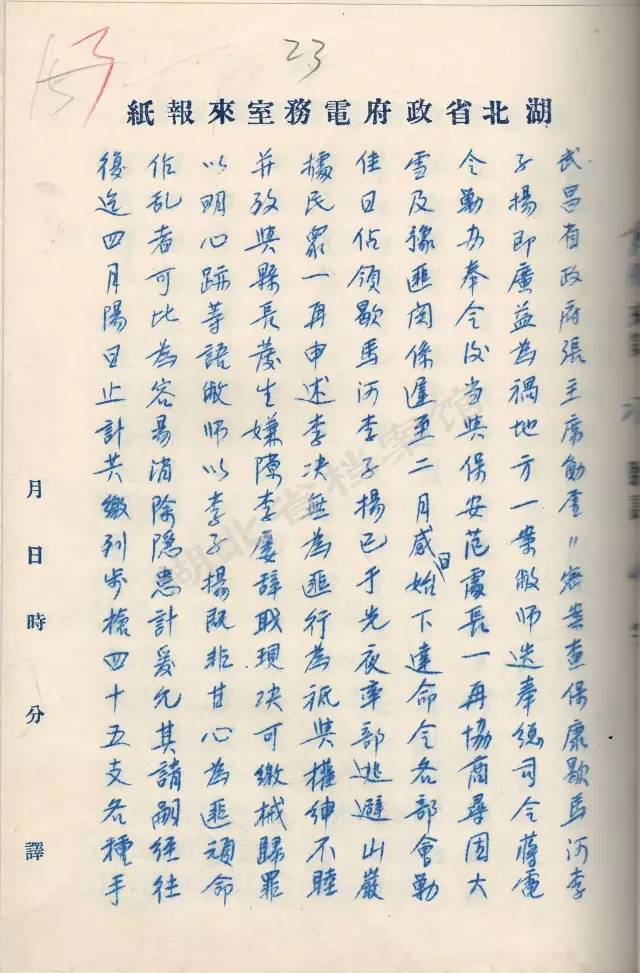 23
湖北省政府電務室來報紙
武昌省政府張主席勛鑒＝密案查保康歇馬河李
子揚即廣益為禍地方一案敝師迭奉總司令蔣電
令勦办奉令後当與保安范處長一再協商尋因大
雪及豫匪関係遲至二月感日始下達命令各部會勦
佳日佔領歇馬河李子揚已于先夜率部逃避山巖
據民衆一再申述李决無為匪行為祇與權紳不睦
并致與縣長發生嫌隙李屡辞职現决可繳械歸罪
以明心跡等語敝師以李子揚既非甘心為匪頑命
作乱者可比為容易消除隠患計爰允其請嗣經往
復迄四月陽日止計共繳列步槍四十五支各種手
月日時分譯
湖北省档案馆